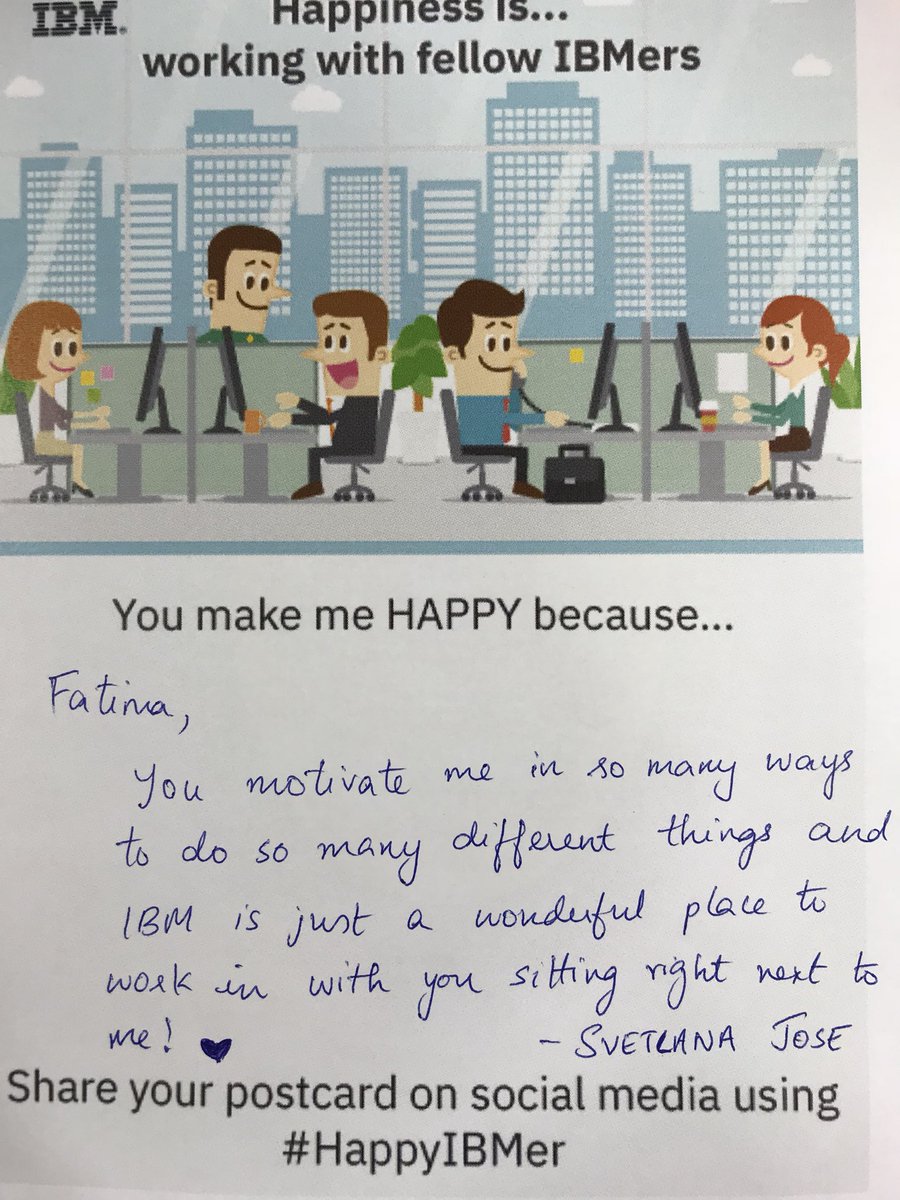 IBM.
Happiness is...
working with fellow IBMers
You make me HAPPY because...
Fatima,
You motivate me in so many ways
to do so many different things and
IBM is just a wonderful place to
work in with you sitting right next to
me! ♥
- SVETLANA JOSE
Share your postcard on social media using
#HappyIBMer